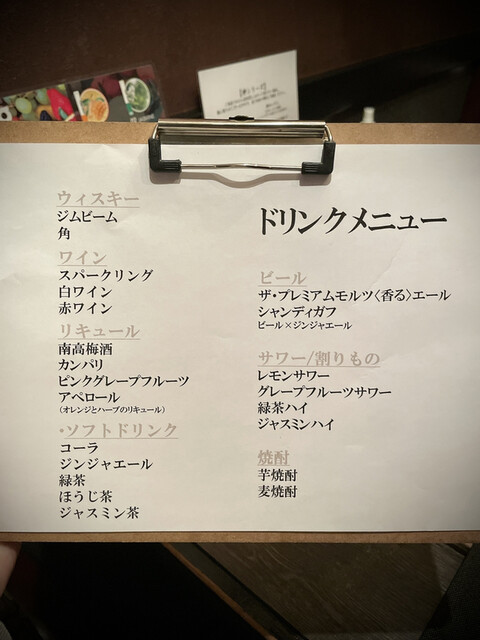 ドリンクメニュー
ビール
ザ・プレミアムモルツ〈香る〉エール
シャンディガフ
ビール×ジンジャエール
サワー/割りもの
レモンサワー
グレープフルーツサワー
緑茶ハイ
ジャスミンハイ
焼酎
芋焼酎
麦焼酎
ウィスキー
ジムビーム
角
ワイン
スパークリング
白ワイン
赤ワイン
リキュール
南高梅酒
カンパリ
ピンクグレープフルーツ
アペロール
(オレンジとハーブのリキュール)
・ソフトドリンク
コーラ
ジンジャエール
緑茶
ほうじ茶
ジャスミン茶